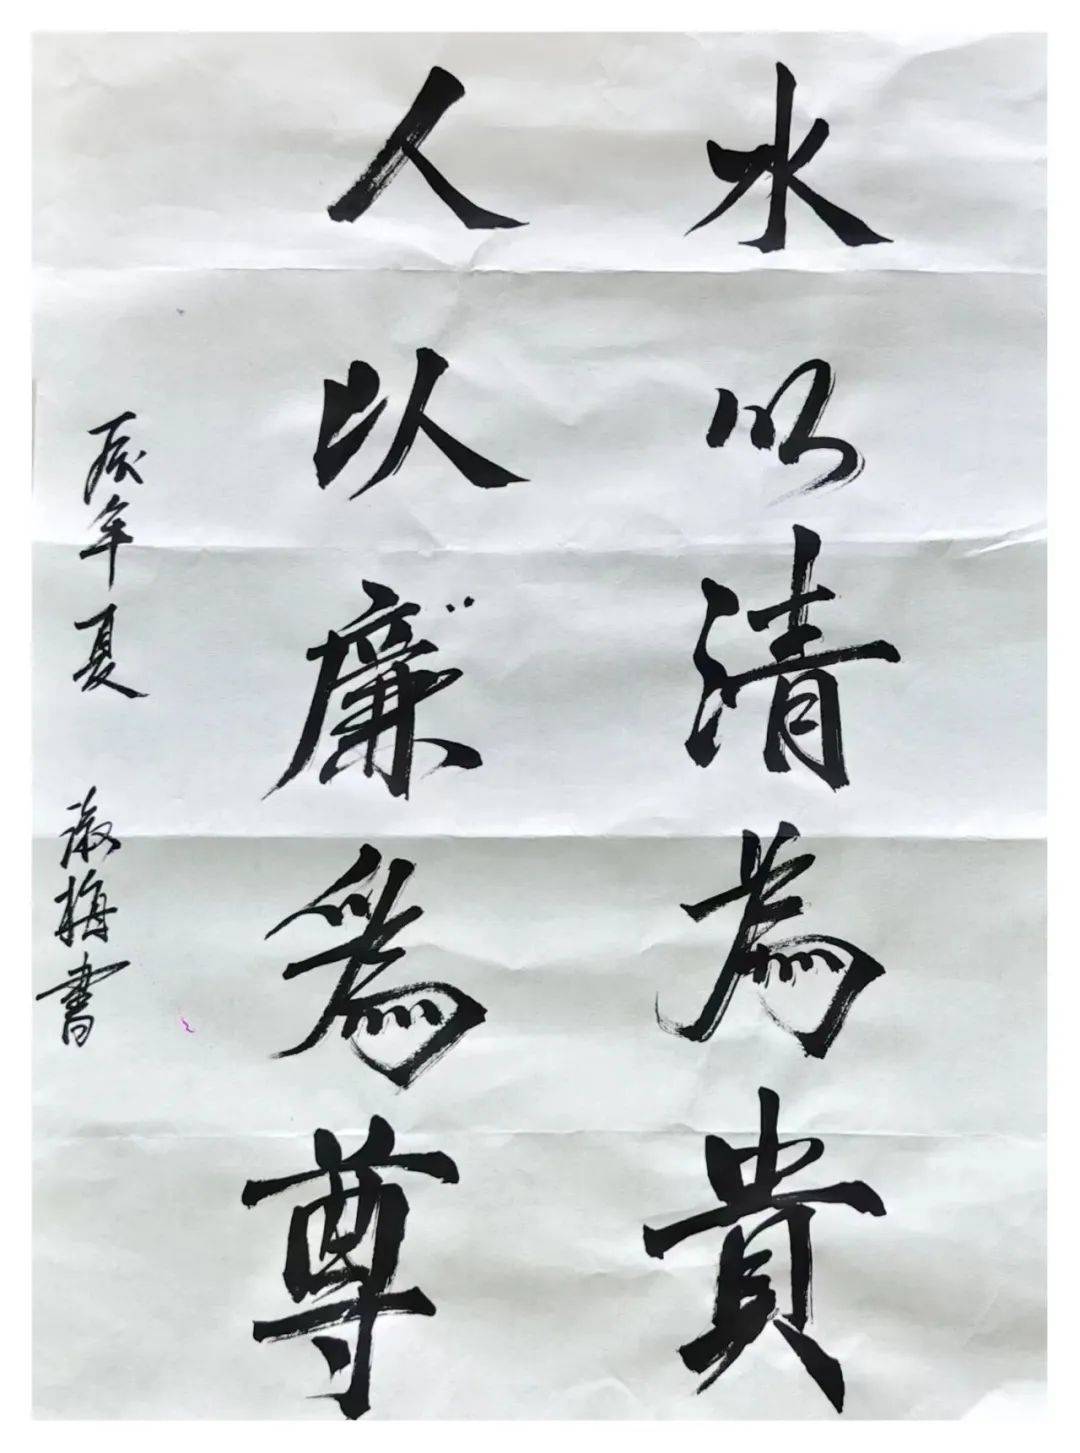 水以清為貴
人以廉為尊
辰年夏 淑梅書